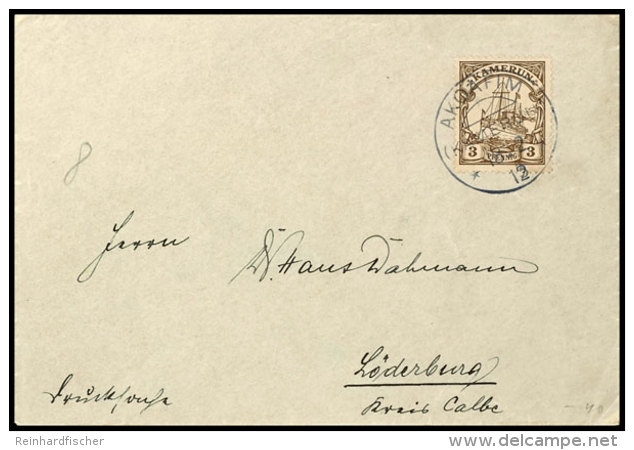 KAMERUN
3 3
AKOAFIM
(KAMERUN)
12
8
Herrn Dr. Hans Dahmann
Löderburg
Drucksache
Kreis Calbe
Reinhardfischer
delcampe.net